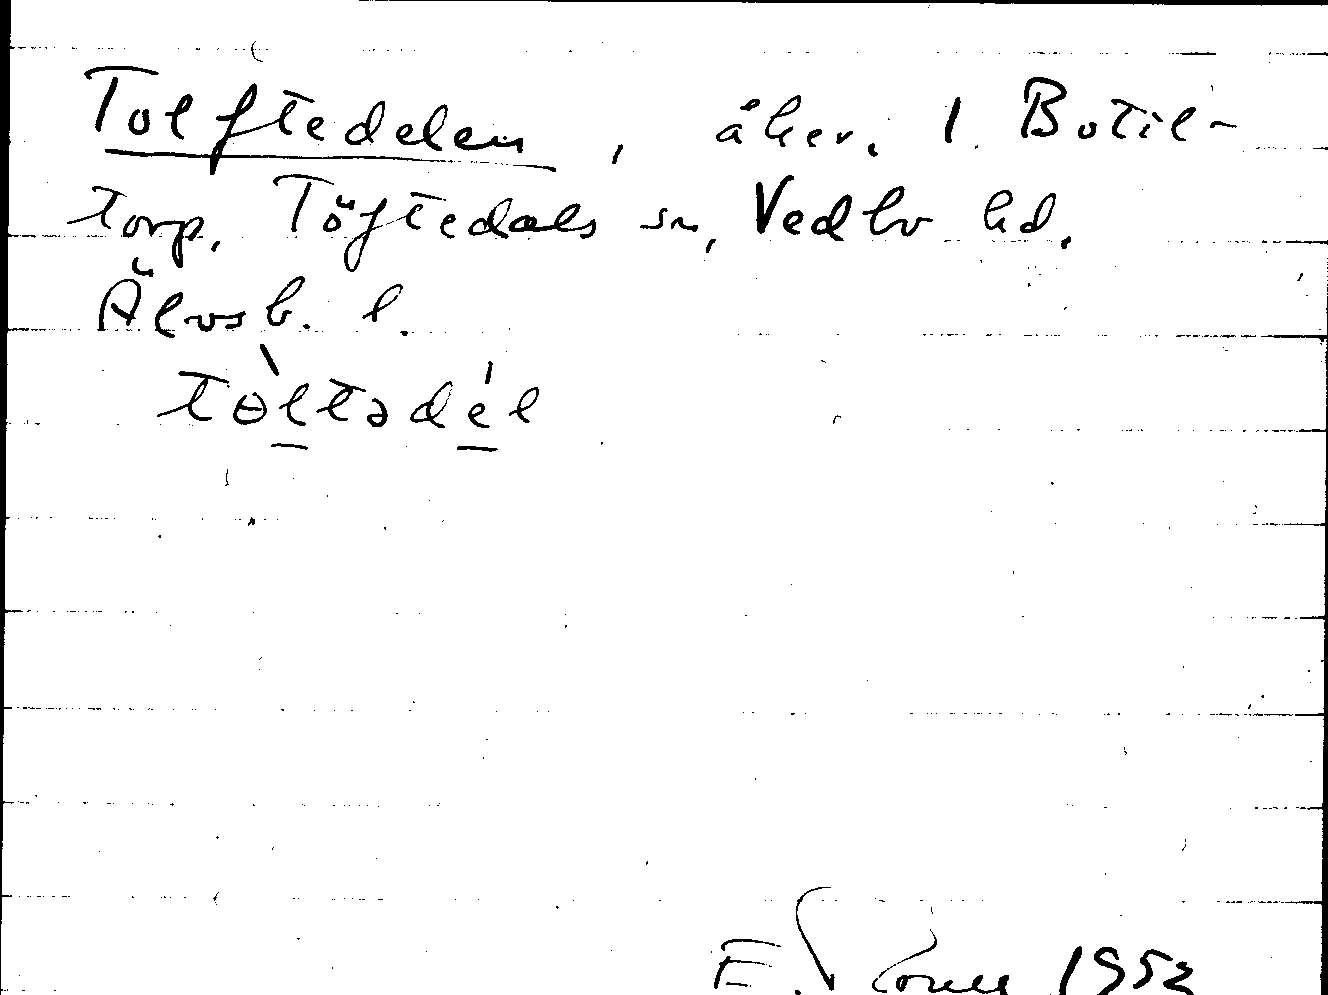 Tolftedelen, åker, 1 Botil-
torp, Töftedals sn, Vedbo hd,
Älvsb. l.
tɵ̀ltədél
E. 1952